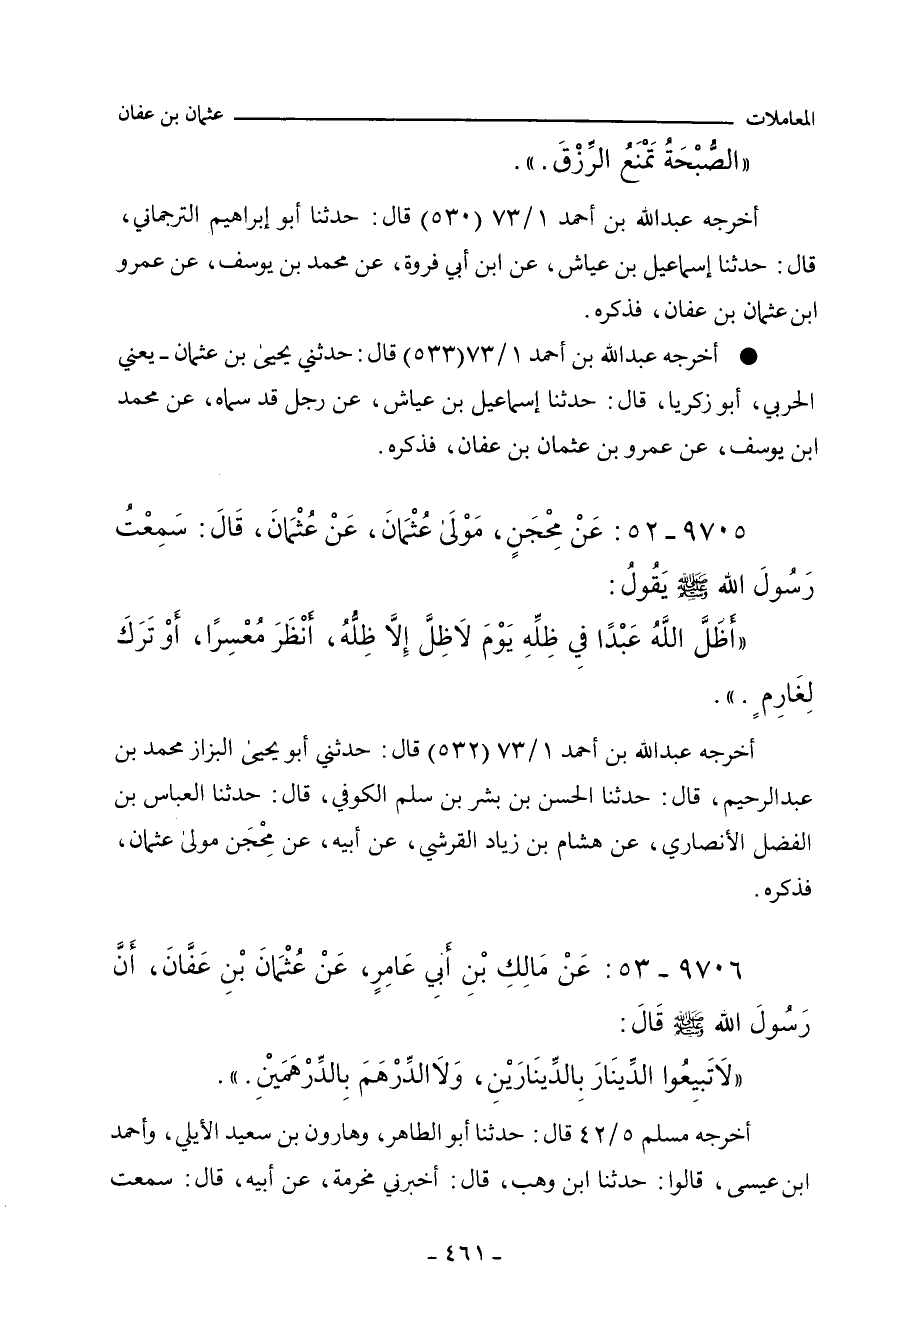 المعاملات ــــــــــــــــــــ عثمان بن عفان
«الصُّبْحَةُ تَمْنَعُ الرِّزْقَ . » .
أخرجه عبدالله بن أحمد ١/ ٧٣ (٥٣٠) قال : حدثنا أبو إبراهيم الترجماني،
قال : حدثنا إسماعيل بن عياش، عن ابن أبي فروة، عن محمد بن يوسف، عن عمرو
ابن عثمان بن عفان، فذكره .
● أخرجه عبدالله بن أحمد ١/ ٧٣(٥٣٣) قال : حدثني يحيىٰ بن عثمان ـ يعني
الحربي، أبو زكريا، قال : حدثنا إسماعيل بن عياش، عن رجل قد سماه، عن محمد
ابن يوسف، عن عمرو بن عثمان بن عفان، فذكره .
٩٧٠٥ ـ ٥٢ : عَنْ مِحْجَنٍ، مَوْلَىٰ عُثْمَانَ، عَنْ عُثْمَانَ، قَالَ : سَمِعْتُ
رَسُولَ الله ﷺ يَقُولُ :
«أَظَلَّ اللَّهُ عَبْدًا فِي ظِلِّهِ يَوْمَ لَاظِلَّ إِلَّا ظِلُّهُ، أَنْظَرَ مُعْسِرًا، أَوْ تَرَكَ
لِغَارِمٍ . » .
أخرجه عبدالله بن أحمد ١/ ٧٣ (٥٣٢) قال : حدثني أبو يحيىٰ البزاز محمد بن
عبدالرحيم، قال : حدثنا الحسن بن بشر بن سلم الكوفي، قال : حدثنا العباس بن
الفضل الأنصاري، عن هشام بن زياد القرشي، عن أبيه، عن مِحْجَن مولىٰ عثمان،
فذكره .
٩٧٠٦ ـ ٥٣ : عَنْ مَالِكِ بْنِ أَبِي عَامِرٍ، عَنْ عُثْمَانَ بْنِ عَفَّانَ، أَنَّ
رَسُولَ الله ﷺ قَالَ :
«لَاتَبِيعُوا الدِّينَارَ بِالدِّينَارَيْنِ، وَلَاالدِّرْهَمَ بِالدِّرْهَمَيْنِ . » .
أخرجه مسلم ٥/ ٤٢ قال : حدثنا أبو الطاهر، وهارون بن سعيد الأيلي، وأحمد
ابن عيسى، قالوا : حدثنا ابن وهب، قال : أخبرني مخرمة، عن أبيه، قال : سمعت
ـ ٤٦١ ـ